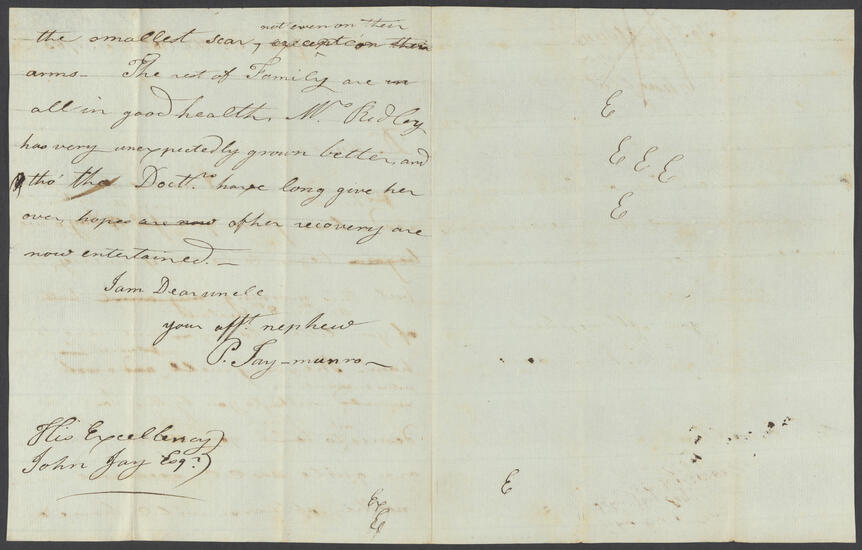 not even on their
the smallest scar, except on their
arms— The rest of Family are in
all in good health, Mrs Ridley
has very unexpectedly grown better, and
tho' the Doctrs have long give her
over, hopes are now of her recovery are
now entertained.—
I am Dear uncle
your afft. nephew
P. Jay-munro—
His Excellency
John Jay Esqr.
E
E E E
E
E
Ex
E